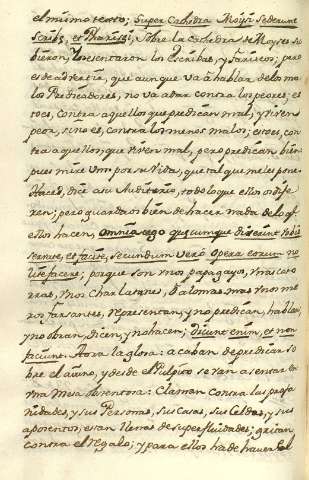 el mismo texto; Super Cathedra Moysi sederunt
Scribæ, et Pharisæi, Sobre la Cathedra de Moyses su
bieron, y se sentaron los Escribas, y Fariseos; pero
es de advertir, que aunque va à hablar de los ma
los Predicadores, no va à dar contra los peores; es
to es, contra aquellos que predican mal, y viven
peor, sino es, contra los menos malos; esto es, con
tra aquellos, que viven mal, pero predican bien
pues mire Vm por su Vida, que tal que me les pone
Haced, dice à su Auditorio, todo lo que ellos os dije
ren; pero guardaos bien de hacer nada de lo q.e
ellos hacen, Omnia ergo quæcumque dixerint vobis
servate, et facite, secundum verò opera eorum no
lite facere; porque son unos papagayos, unas coto
rras, unos Charlatanes,
farsantes, representan, y no predican, hablan,
y no obran, dicen, y no hacen; Dicunt enim, et non
faciunt. Aora la glosa: acaban de predicar so
bre el aiuno, y desde el Pulpito se van a sentar en
una Mesa obsentosa: Claman contra las profa
nidades, y sus Personas, sus Casas, sus Celdas, y sus
aposentos, estan llenas de superfluidades; gritan
contra el regalo; y para ellos ha de haver el